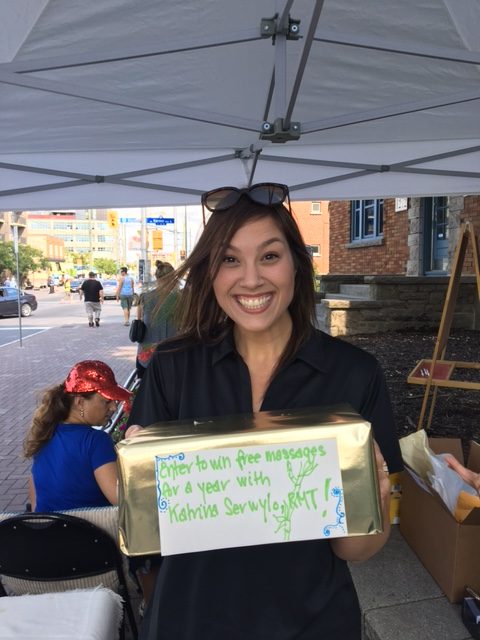 Enter to win free massages
for a year with
Katrina Serwylo, RMT!